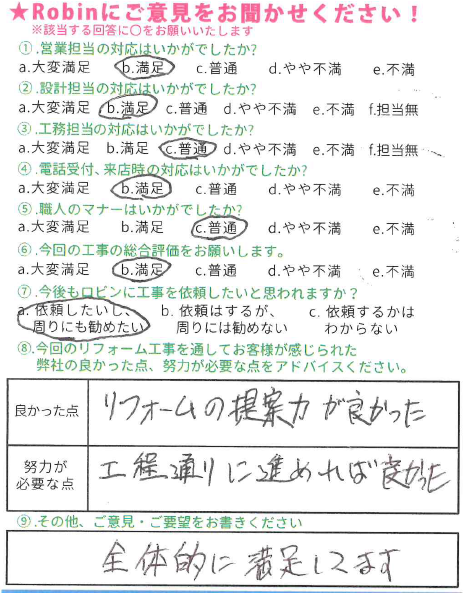 ★Robinにご意見をお聞かせください！
※該当する回答に〇をお願いいたします
①.営業担当の対応はいかがでしたか?
a.大変満足 b.満足 c.普通 d.やや不満 e.不満
②.設計担当の対応はいかがでしたか?
a.大変満足 b.満足 c.普通 d.やや不満 e.不満 f.担当無
③.工務担当の対応はいかがでしたか?
a.大変満足 b.満足 c.普通 d.やや不満 e.不満 f.担当無
④.電話受付、来店時の対応はいかがでしたか?
a.大変満足 b.満足 c.普通 d.やや不満 e.不満
⑤.職人のマナーはいかがでしたか?
a.大変満足 b.満足 c.普通 d.やや不満 e.不満
⑥.今回の工事の総合評価をお願いします。
a.大変満足 b.満足 c.普通 d.やや不満 e.不満
⑦.今後もロビンに工事を依頼したいと思われますか？
a. 依頼したいし、 b. 依頼はするが、 c. 依頼するかは
周りにも勧めたい 周りには勧めない わからない
⑧.今回のリフォーム工事を通してお客様が感じられた
弊社の良かった点、努力が必要な点をアドバイスください。
良かった点 リフォームの提案力が良かった
努力が
必要な点 工程通りに進めれば良かった
⑨.その他、ご意見・ご要望をお書きください
全体的に満足してます